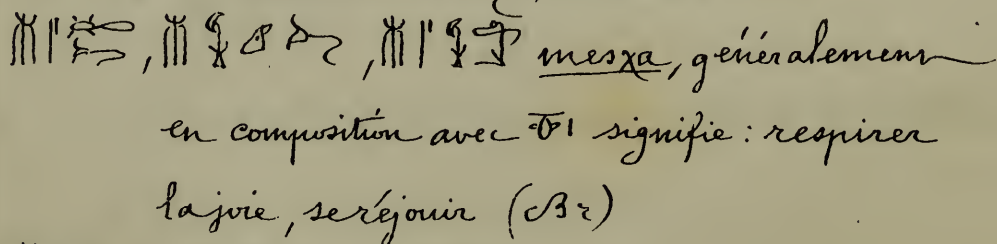 , , mesχa, généralement
en composition avec signifie : respirer
la joie, se réjouir (Br)